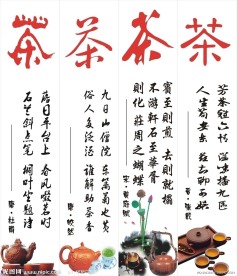 茶
芳茶冠六清 溢味播九区
人生苟安乐 兹土聊可娱
晋·张载
茶
賓至則煎 去則就榻
不游軒石至華胥
則化莊周之蝴蝶
宋·黄庭堅
茶
九日山僧院 东篱菊也黄
俗人多泛酒 谁解助茶香
唐·皎然
茶
落日平台上 春风啜茗时
石阑斜点笔 桐叶坐题诗
唐·杜甫